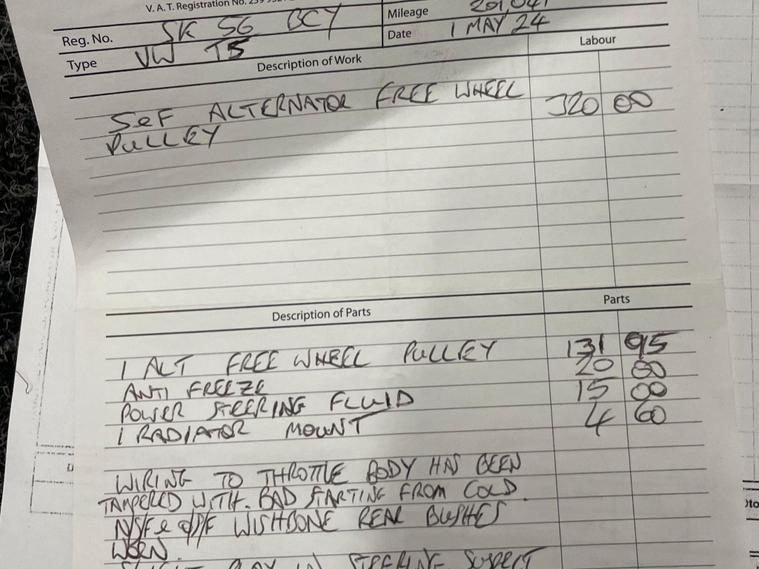 V. A. T. Registration No.
Reg. No. SK 56 BCY
Mileage 201,041
Type VW T5
Date 1 MAY 24
Description of Work
Labour
S&F ALTERNATOR FREE WHEEL 320 00
PULLEY
Description of Parts
Parts
1 ALT FREE WHEEL PULLEY 131 95
ANTI FREEZE 20 00
POWER STEERING FLUID 15 00
1 RADIATOR MOUNT 4 60
WIRING TO THROTTLE BODY HAS BEEN
TAMPERED WITH. BAD STARTING FROM COLD.
NSF & O/F WISHBONE REAR BUSHES
WORN.
PLAY IN STEERING SUSPECT